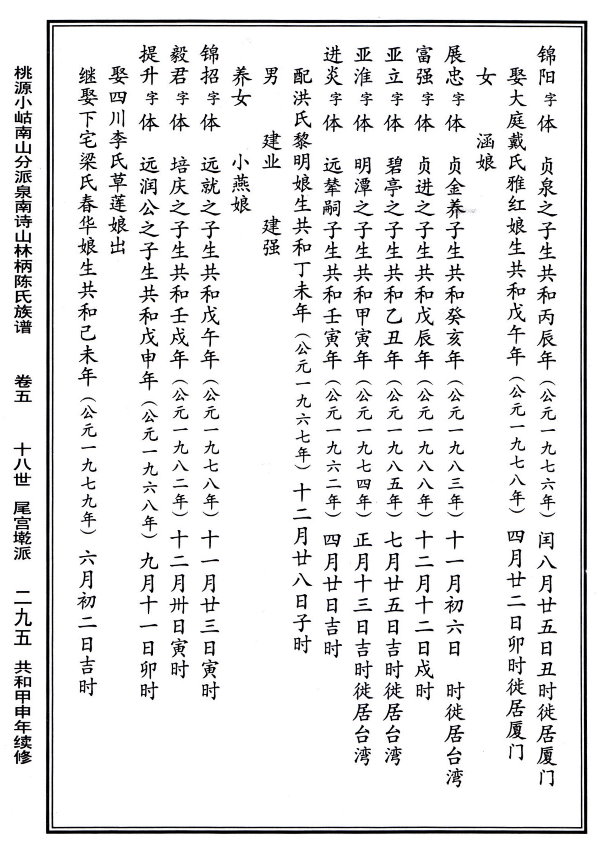 锦阳 字 体 贞泉之子生共和丙辰年（公元一九七六年）闰八月廿五日丑时徙居厦门
娶大庭戴氏雅红娘生共和戊午年（公元一九七八年）四月廿二日卯时徙居厦门
女 涵娘
展忠 字 体 贞金养子生共和癸亥年（公元一九八三年）十一月初六日 时徙居台湾
富强 字 体 贞进之子生共和戊辰年（公元一九八八年）十二月十二日戌时
亚立 字 体 碧亭之子生共和乙丑年（公元一九八五年）七月廿五日吉时徙居台湾
亚淮 字 体 明潭之子生共和甲寅年（公元一九七四年）正月十三日吉时徙居台湾
进炎 字 体 远辇嗣子生共和壬寅年（公元一九六二年）四月廿日吉时
配洪氏黎明娘生共和丁未年（公元一九六七年）十二月廿八日子时
男 建业 建强
养女 小燕娘
锦招 字 体 远就之子生共和戊午年（公元一九七八年）十一月廿三日寅时
毅君 字 体 培庆之子生共和壬戌年（公元一九八二年）十二月卅日寅时
提升 字 体 远润公之子生共和戊申年（公元一九六八年）九月十一日卯时
娶四川李氏草莲娘出
继娶下宅梁氏春华娘生共和己未年（公元一九七九年）六月初二日吉时
桃源小岵南山分派泉南诗山林柄陈氏族谱 卷五 十八世 尾宫墘派 二九五 共和甲申年续修